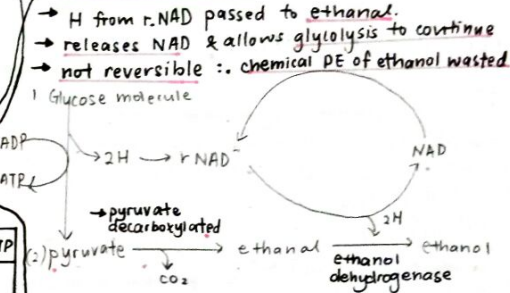 → H from r.NAD passed to ethanal.
→ releases NAD & allows glycolysis to continue
→ not reversible ∴ chemical PE of ethanol wasted
1 Glucose molecule
ADP
ATP
→ 2H → rNAD
NAD
→ pyruvate
decarboxylated
2H
TP
(2) pyruvate → ethanal → ethanol
CO2
ethanol
dehydrogenase